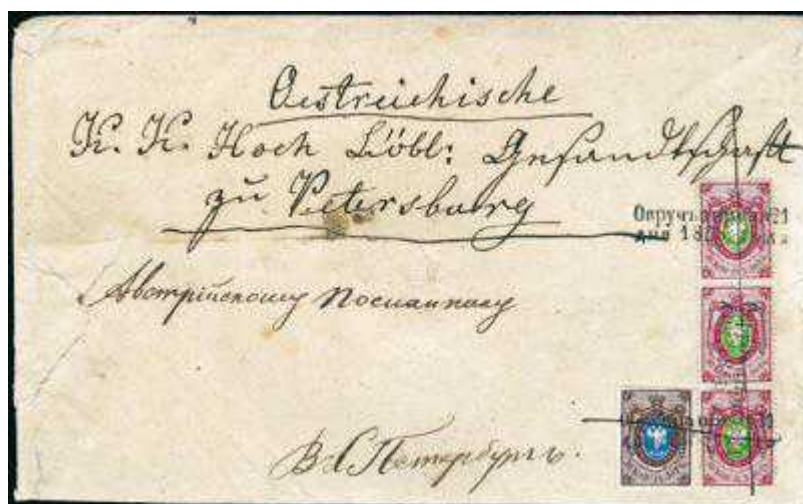 Oestreichische
K. K. Hoch Löbl: Gesandtschaft
zu Petersburg
Овручь
дня 18
Австрійскому Посланнику
В С Петербургъ.